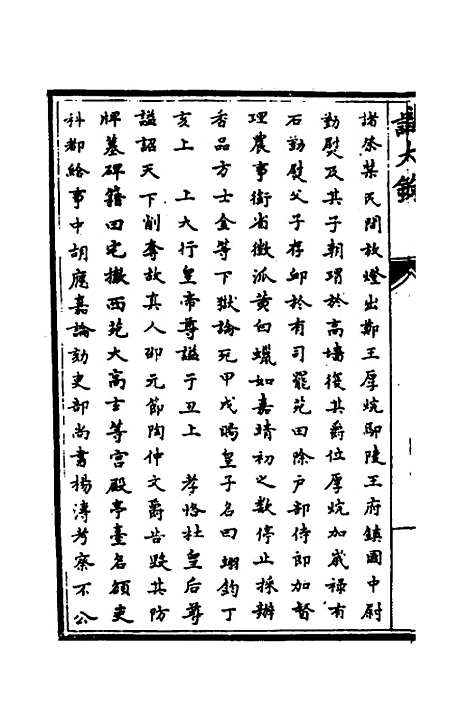 諸祭禁民間放燈出鄭王厚烷郾陵王府鎮國中尉
勤熨及其子朝㻉於高墻復其爵位厚烷加歲祿有
石勤熨父子存卹於有司罷苑田除户部侍郎加督
理農事銜省徵派黄白蠟如嘉靖初之數停止採辦
香品方士金等下獄論死甲戌賜皇子名曰翊鈞丁
亥上　上大行皇帝尊謚于丑上　孝恪杜皇后尊
謚詔天下削奪故真人邵元節陶仲文爵告毁其防
牌墓碑籍田宅撤西苑大高玄等宮殿亭臺名額吏
科都給事中胡應嘉論劾吏部尚書楊溥考察不公